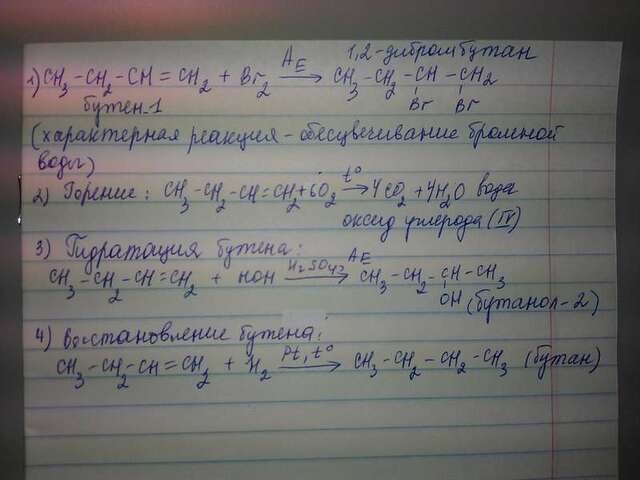 1,2-дибромбутан
1) CH₃-CH₂-CH=CH₂ + Br₂ →(A_E) CH₃-CH₂-CH-CH₂
Br Br
бутен-1
(характерная реакция - обесцвечивание бромной
воды)
2) Горение: CH₃-CH₂-CH=CH₂+6O₂ →(t°) 4CO₂ + 4H₂O вода
оксид углерода (IV)
3) Гидратация бутена:
CH₃-CH₂-CH=CH₂ + HOH →(H₂SO₄, A_E) CH₃-CH₂-CH-CH₃
OH (бутанол-2)
4) Восстановление бутена:
CH₃-CH₂-CH=CH₂ + H₂ →(Pt, t°) CH₃-CH₂-CH₂-CH₃ (бутан)